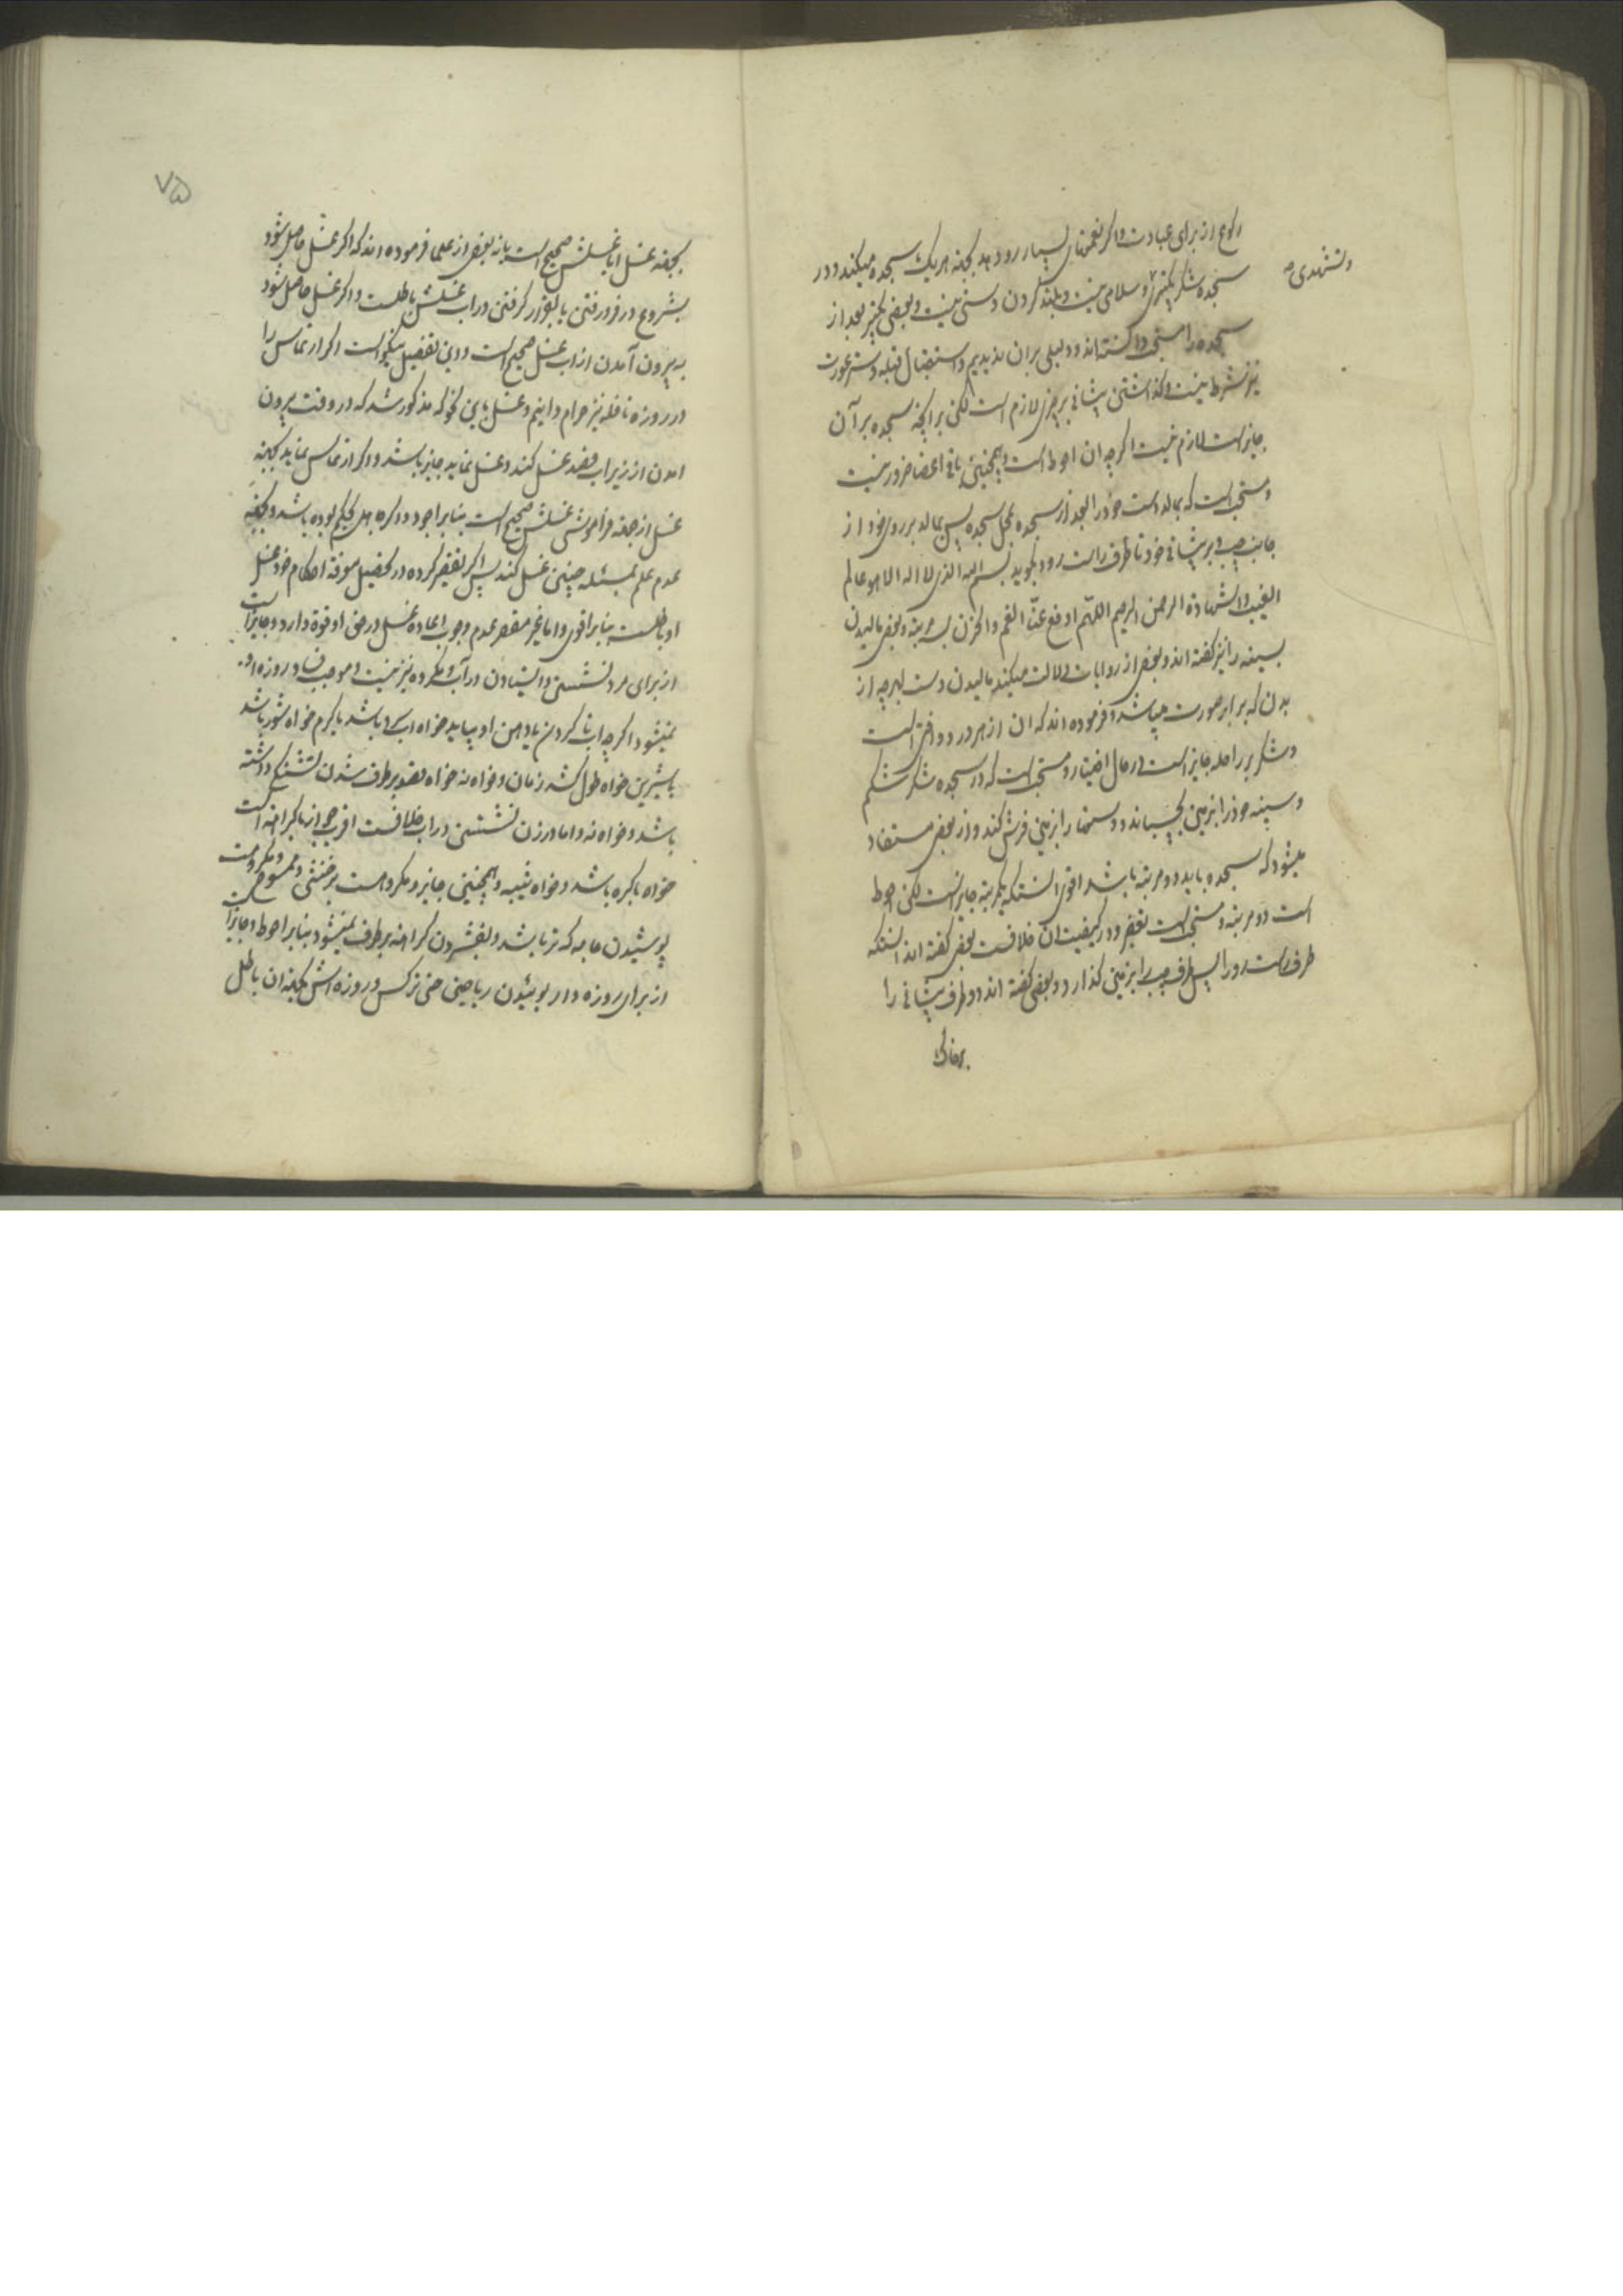 رکوع از برای عبادت و اکر نعمتهای بسیار رو دهد بجهة هر یک سجده میکند و در
و تشهدی صح
سجده شکر تکبیری و سلامی نیست و بلند کردن دستی نیست و بعضی تکبیر بعد از
سجده را مستحب دانسته اند و دلیلی بر ان ندیدیم و استقبال قبله و ستر عورت
نیز شرط نیست و کذاشتن پیشانی بر چیزی لازم است لکن بر انچه سجده بر آن
جایز است لازم نیست اکرچه ان احوط است و همچنین باقی اعضا ضرور نیست
و مستحب است که بمالد دست خود را بعد از سجده بمحل سجده پس بمالد بر روی خود از
جانب چپ و بر پیشانی خود تا طرف راست رو و بکوید بسم الله الذی لا اله الا هو عالم
الغیب و الشهادة الرحمن الرحیم اللهم ادفع عنّی الغم و الحزن سه مرتبه و بعضی مالیدن
بسینه را نیز کفته اند و بعضی از روایات دلالت میکند بمالیدن دست بهرچه از
بدن که برابر صورت میباشد و فرموده اند که ان از هر درد دوائی است
و شکر بر راحله جایز است در حال اختیار و مستحب است که در سجده شکر شکم
و سینه خود را بزمین بچسباند و دستها را بزمین فرش کند و از بعضی مستفاد
میشود که سجده باید دو مرتبه باشد اقوی انستکه یکمرتبه جایز است لکن احوط
است دو مرتبه و مستحب است تعفیر و در کیفیت ان خلافست بعضی کفته اند انستکه
طرف راست رو را پس طرف چپ را بزمین کذارد و بعضی کفته اند دو طرف پیشانی را
بخاک
۷۵
بجهة غسل ایا غسلش صحیح است یا نه بعضی از علما فرموده اند که اکر غسل حاصل شود
بشروع در فرورفتن یا بقرار کرفتن در اب غسلش باطلست و اکر غسل حاصل شود
به بیرون آمدن از اب غسل صحیح است و این تفصیل نیکو است اکر ارتماس را
در روزه نافله نیز حرام دانیم و غسل باین نحو که مذکور شد که در وقت بیرون
امدن از زیر اب قصد غسل کند و غسل نماید جایز باشد و اکر ارتماس نماید بجهة
غسل از جهة فراموشی غسلش صحیح است بنا بر اجود و اکر جاهل بحکم بوده باشد و بجهة
عدم علم بمسئله چنین غسل کند پس اکر تقصیر کرده در تحصیل معرفة احکام خود غسل
او باطلست بنا بر اقوی و اما غیر مقصر عدم وجوب اعاده غسل در حق او قوة دارد و جایز است
از برای مرد نشستن و ایستادن در آب و مکروه نیز نیست و موجب فساد روزه او
نمیشود اکرچه اب تا کردن یا دهن او بیاید خواه اب سرد باشد یا کرم خواه شور باشد
یا شیرین خواه طول کشد زمان و خواه نه خواه بقصد برطرف شدن تشنکی داشته
باشد و خواه نه و اما در زن نشستن در اب خلافست اقرب جواز با کراهة است
خواه باکره باشد و خواه ثیبه و همچنین جایز و مکروهست بر خنثی و ممسوح و مکروهست
پوشیدن جامه که تر باشد و بفشردن کراهة برطرف نمیشود بنا بر احوط و جایز است
از برای روزه دار بوئیدن ریاحین حتی نرکس و روزه اش بجهة ان باطل